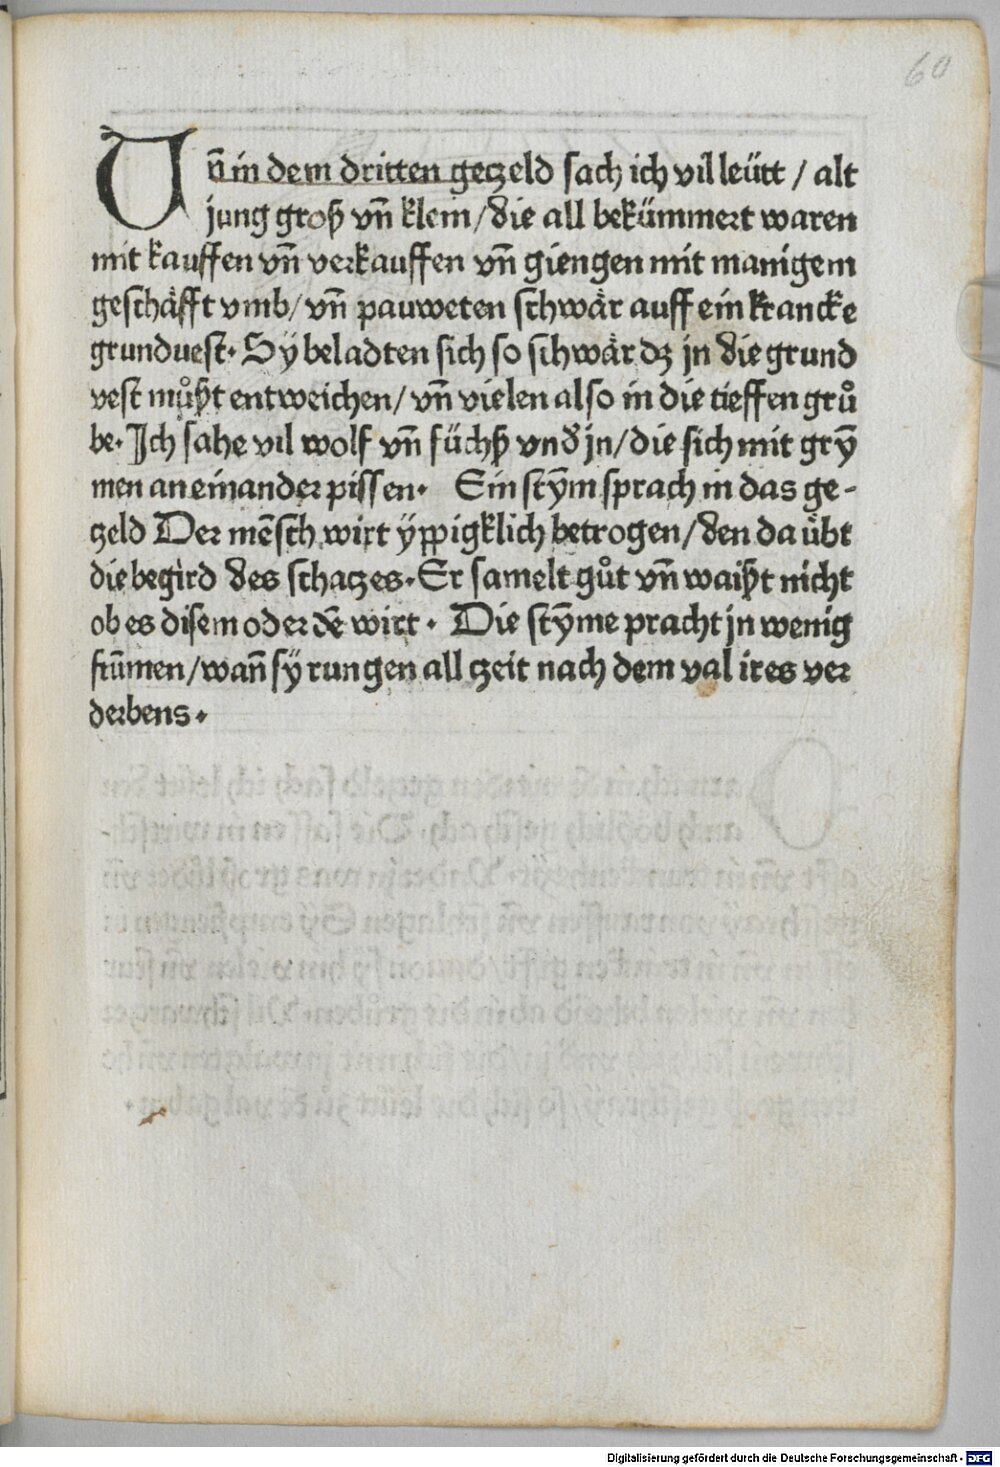 60
Un̄ in dem dritten geczeld sach ich vil leütt / alt
jung groß vn̄ klein / die all bekümmert waren
mit kauffen vn̄ verkauffen vn̄ giengen mit manigem
geschäfft vmb / vn̄ pauweten schwär auff ein krancke
grundvest· Sy beladten sich so schwär dz jn die grund
vest můßt entweichen / vn̄ vielen also in die tieffen grů
be· Ich sahe vil wolf vn̄ füchß vnd jn / die sich mit gry̅
men an einander pissen· Ein sty̅m sprach in das ge-
czeld Der mēsch wirt ÿppigklich betrogen / den da übt
die begird des schatzes· Er samelt gůt vn̄ waißt nicht
ob es disem oder dē wirt· Die sty̅me pracht jn wenig
frūmen / wan̄ sy rungen all czeit nach dem val ires ver
derbens·
Digitalisierung gefördert durch die Deutsche Forschungsgemeinschaft - DFG